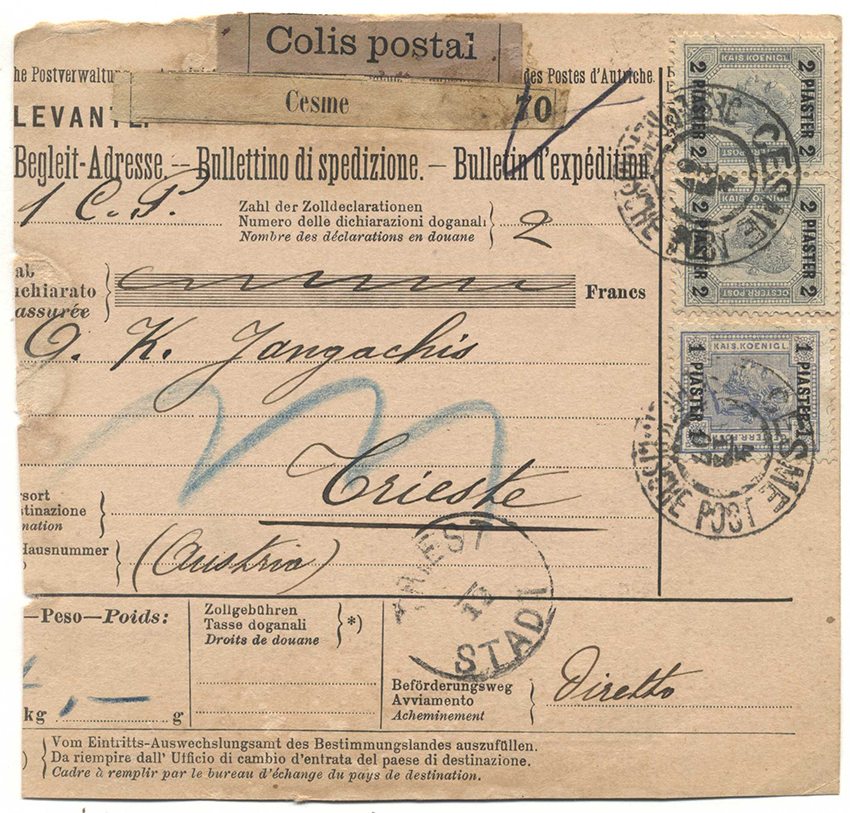 Colis postal
he Postverwaltung
des Postes d'Autriche.
Cesme 70
LEVANTE.
Begleit-Adresse. — Bullettino di spedizione. — Bulletin d'expédition.
1 C. P.
Zahl der Zolldeclarationen
Numero delle dichiarazioni doganali
Nombre des déclarations en douane
2
uchiarato
assurée
Francs
O. K. Jangachis
Trieste
sort
stinazione
nation
Hausnummer
(Austria)
—Peso—Poids:
kg
g
Zollgebühren
Tasse doganali
Droits de douane
*)
Beförderungsweg
Avviamento
Acheminement
Diretto
Vom Eintritts-Auswechslungsamt des Bestimmungslandes auszufüllen.
Da riempire dall' Ufficio di cambio d'entrata del paese di destinazione.
Cadre à remplir par le bureau d'échange du pays de destination.
KAIS. KOENIGL.
2 PIASTER 2
2 PIASTER 2
KAIS. KOENIGL.
2 PIASTER 2
2 PIASTER 2
OESTERR. POST
KAIS. KOENIGL.
1 PIASTER 1
1 PIASTER 1
CESME
POST
CESME
POST
TRIEST
STADT